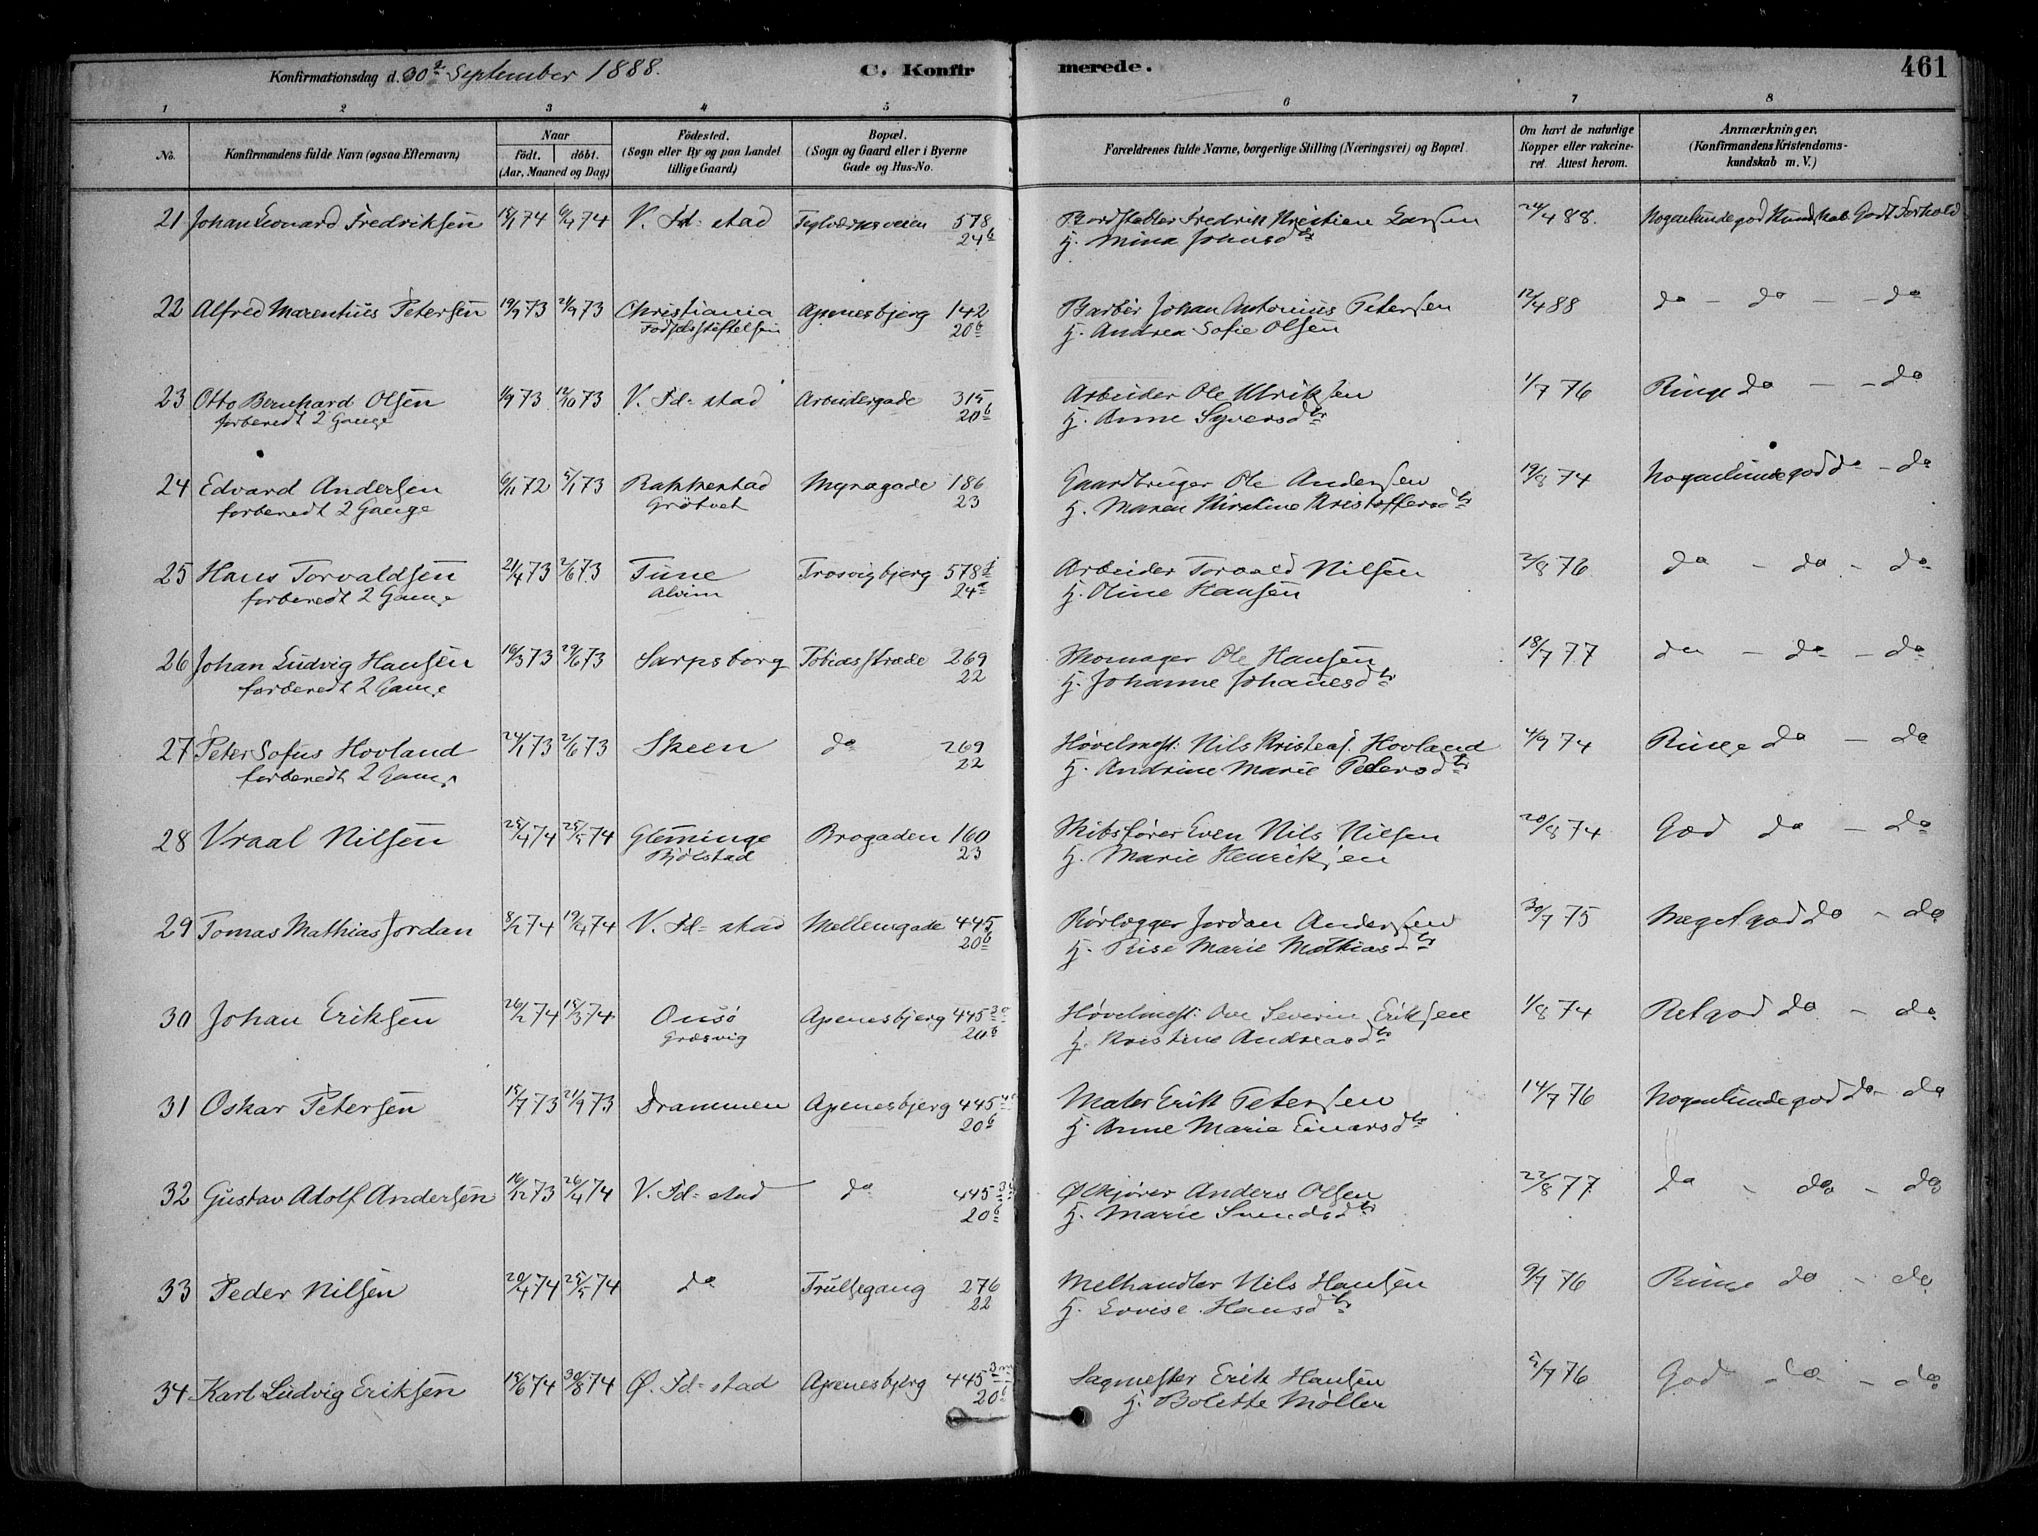 Konfirmationsdag d. 30te September 1888.
C. Konfirmerede.
461
1 2 3 4 5 6 7 8
No.
Konfirmandens fulde Navn (ogsaa Efternavn)
Naar
födt. | döbt.
(Aar, Maaned og Dag)
Födested.
(Sogn eller By og paa Landet tillige Gaard)
Bopæl.
(Sogn og Gaard eller i Byerne Gade og Hus-No.
Forældrenes fulde Navne, borgerlige Stilling (Næringsvei) og Bopæl.
Om havt de naturlige Kopper eller vakcineret. Attest herom.
Anmærkninger.
(Konfirmandens Kristendomskundskab m. V.)
21 Johan Leonard Fredriksen 74 6/4 74 V. Fd-stad 578 Fredrik Kristian Larsen 24/4 88. Nogenlunde god Kundskab Godt Forhold
24b Hj. Mina Johnsdtr
22 Alfred Marentius Petersen 19/9 73 21/9 73 Christiania Apenesbjerg 142 Barbér Johan Antonius Petersen 12/4 88 do - do - - do
Fødselsstiftelsen 20b Hj. Andrea Sofie Olsen
23 Otto Bernhard Olsen 1/9 73 12/10 73 V. Fd-stad Arbeidergade 315 Arbeider Ole Ulriksen 1/7 76 Ringe do - - do
forberedt 2 Gange 20b Hj. Anne Syversdtr
24 Edvard Andersen 6/11 72 5/1 73 Rakkestad Myragade 186 Gaardbruger Ole Andersen 19/8 74 Nogenlunde god do - do
forberedt 2 Gange Grötvet 23 Hj. Maren Kirstine Kristoffersdtr
25 Hans Torvaldsen 21/4 73 2/6 73 Tune Trosvigbjerg 578d Arbeider Torvald Nilsen 2/8 76 do - do - do
forberedt 2 Gange Alvim 24a Hj. Oline Hansen
26 Johan Ludvig Hansen 16/3 73 29/6 73 Sarpsborg Tobiasstræde 269 Skomager Ole Hansen 18/7 77 do - do - do
forberedt 2 Gange 22 Hj. Johanne Johanesdtr
27 Peter Sofus Hovland 24/1 73 2/6 73 Skeen do 269 Høvelmest: Nils Kristens. Hovland 4/9 74 Ringe do - do
forberedt 2 Gange 22 Hj. Andrine Marie Petersdtr
28 Vraal Nilsen 25/4 74 25/5 74 Glemminge Brogaden 160 Skibsfører Even Nils Nilsen 20/8 74 God do - do
Bjölstad 23 Hj. Marie Henriksen
29 Tomas Mathias Jordan 8/2 74 19/4 74 V. Fd-stad Mellemgade 445 Rørlægger Jordan Andersen 30/7 75 Meget god do - do
20b Hj. Rise Marie Mathiasdtr
30 Johan Eriksen 26/2 74 15/3 74 Onsö Apenesbjerg 445 Høvelmest: Ove Severin Eriksen 1/8 74 Ret god do - do
Græsvig 20b Hj. Kristine Andreasdtr
31 Oskar Petersen 15/7 73 21/9 73 Drammen Apenesbjerg 445 Maler Erik Petersen 14/7 76 Nogenlunde god do - do
20b Hj. Anne Marie Einarsdtr
32 Gustav Adolf Andersen 16/12 73 26/4 74 V. Fd-stad do 445 Ølkjører Anders Olsen 22/8 77 do - do - do
20b Hj. Marie Svendsdtr
33 Peder Nilsen 20/4 74 25/5 74 do Trulsegang 276 Melhandler Nils Hansen 9/7 76 Ringe do - do
22 Hj. Lovise Hansdtr
34 Karl Ludvig Eriksen 15/6 74 30/8 74 Ø. Fd-stad Apenesbjerg 445 Sagmester Erik Hansen 5/7 76 God do - do
20b Hj. Bolette Møller